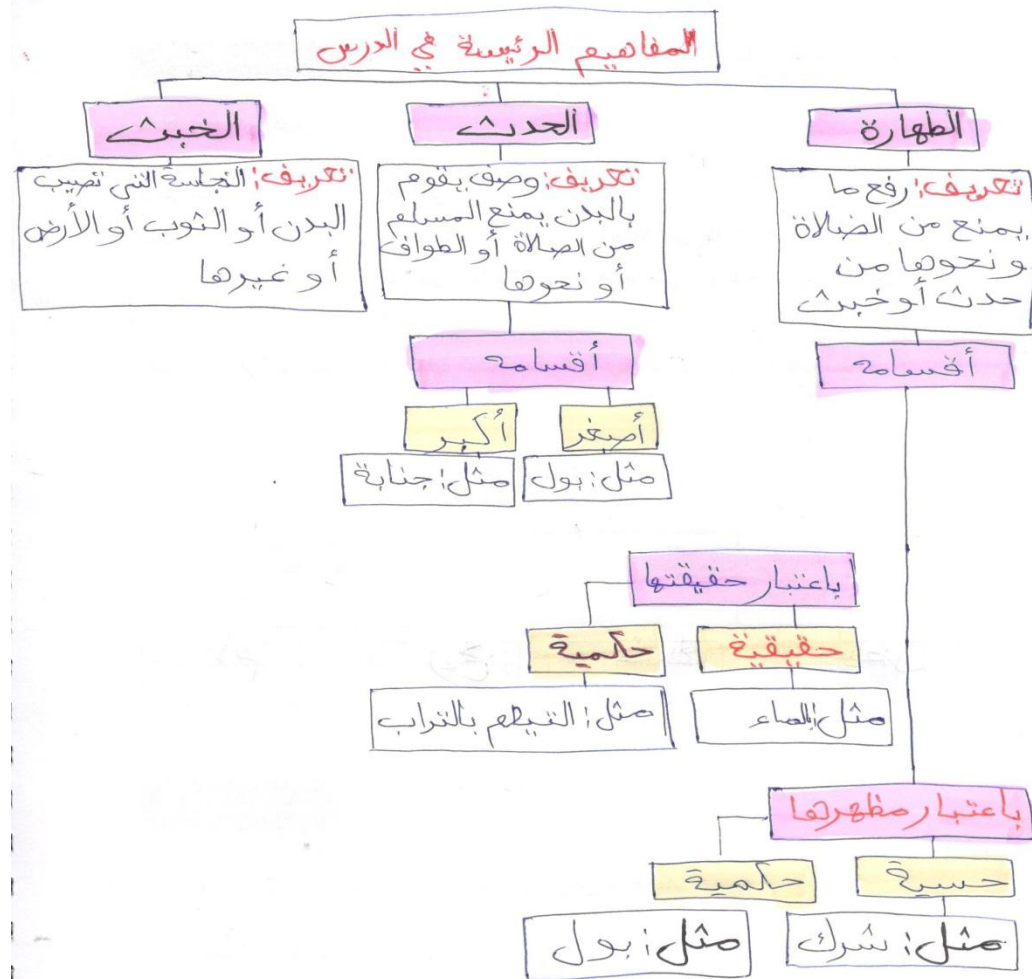 المفاهيم الرئيسة في الدرس
الطهارة
تعريف: رفع ما
يمنع من الصلاة
و نحوها من
حدث أو خبث
أقسامه
الحدث
تعريف: وصف يقوم
بالبدن يمنع المسلم
من الصلاة أو الطواف
أو نحوها
أقسامه
أصغر
مثل: بول
أكبر
مثل: جنابة
الخبث
تعريف: النجاسة التي تصيب
البدن أو الثوب أو الأرض
أو غيرها
باعتبار حقيقتها
حقيقية
مثل: بالماء
حكمية
مثل: التيمم بالتراب
باعتبار مظهرها
حسية
مثل: شرك
حكمية
مثل: بول